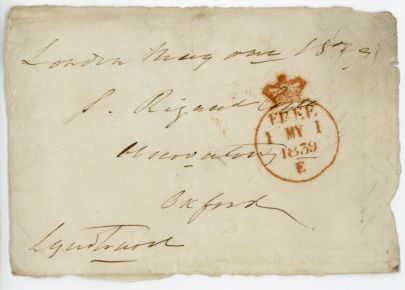 London May one 1839
S. Rigaud Esqre
Observatory
Oxford
Lyndhurst
FREE
1 MY 1
1839
E